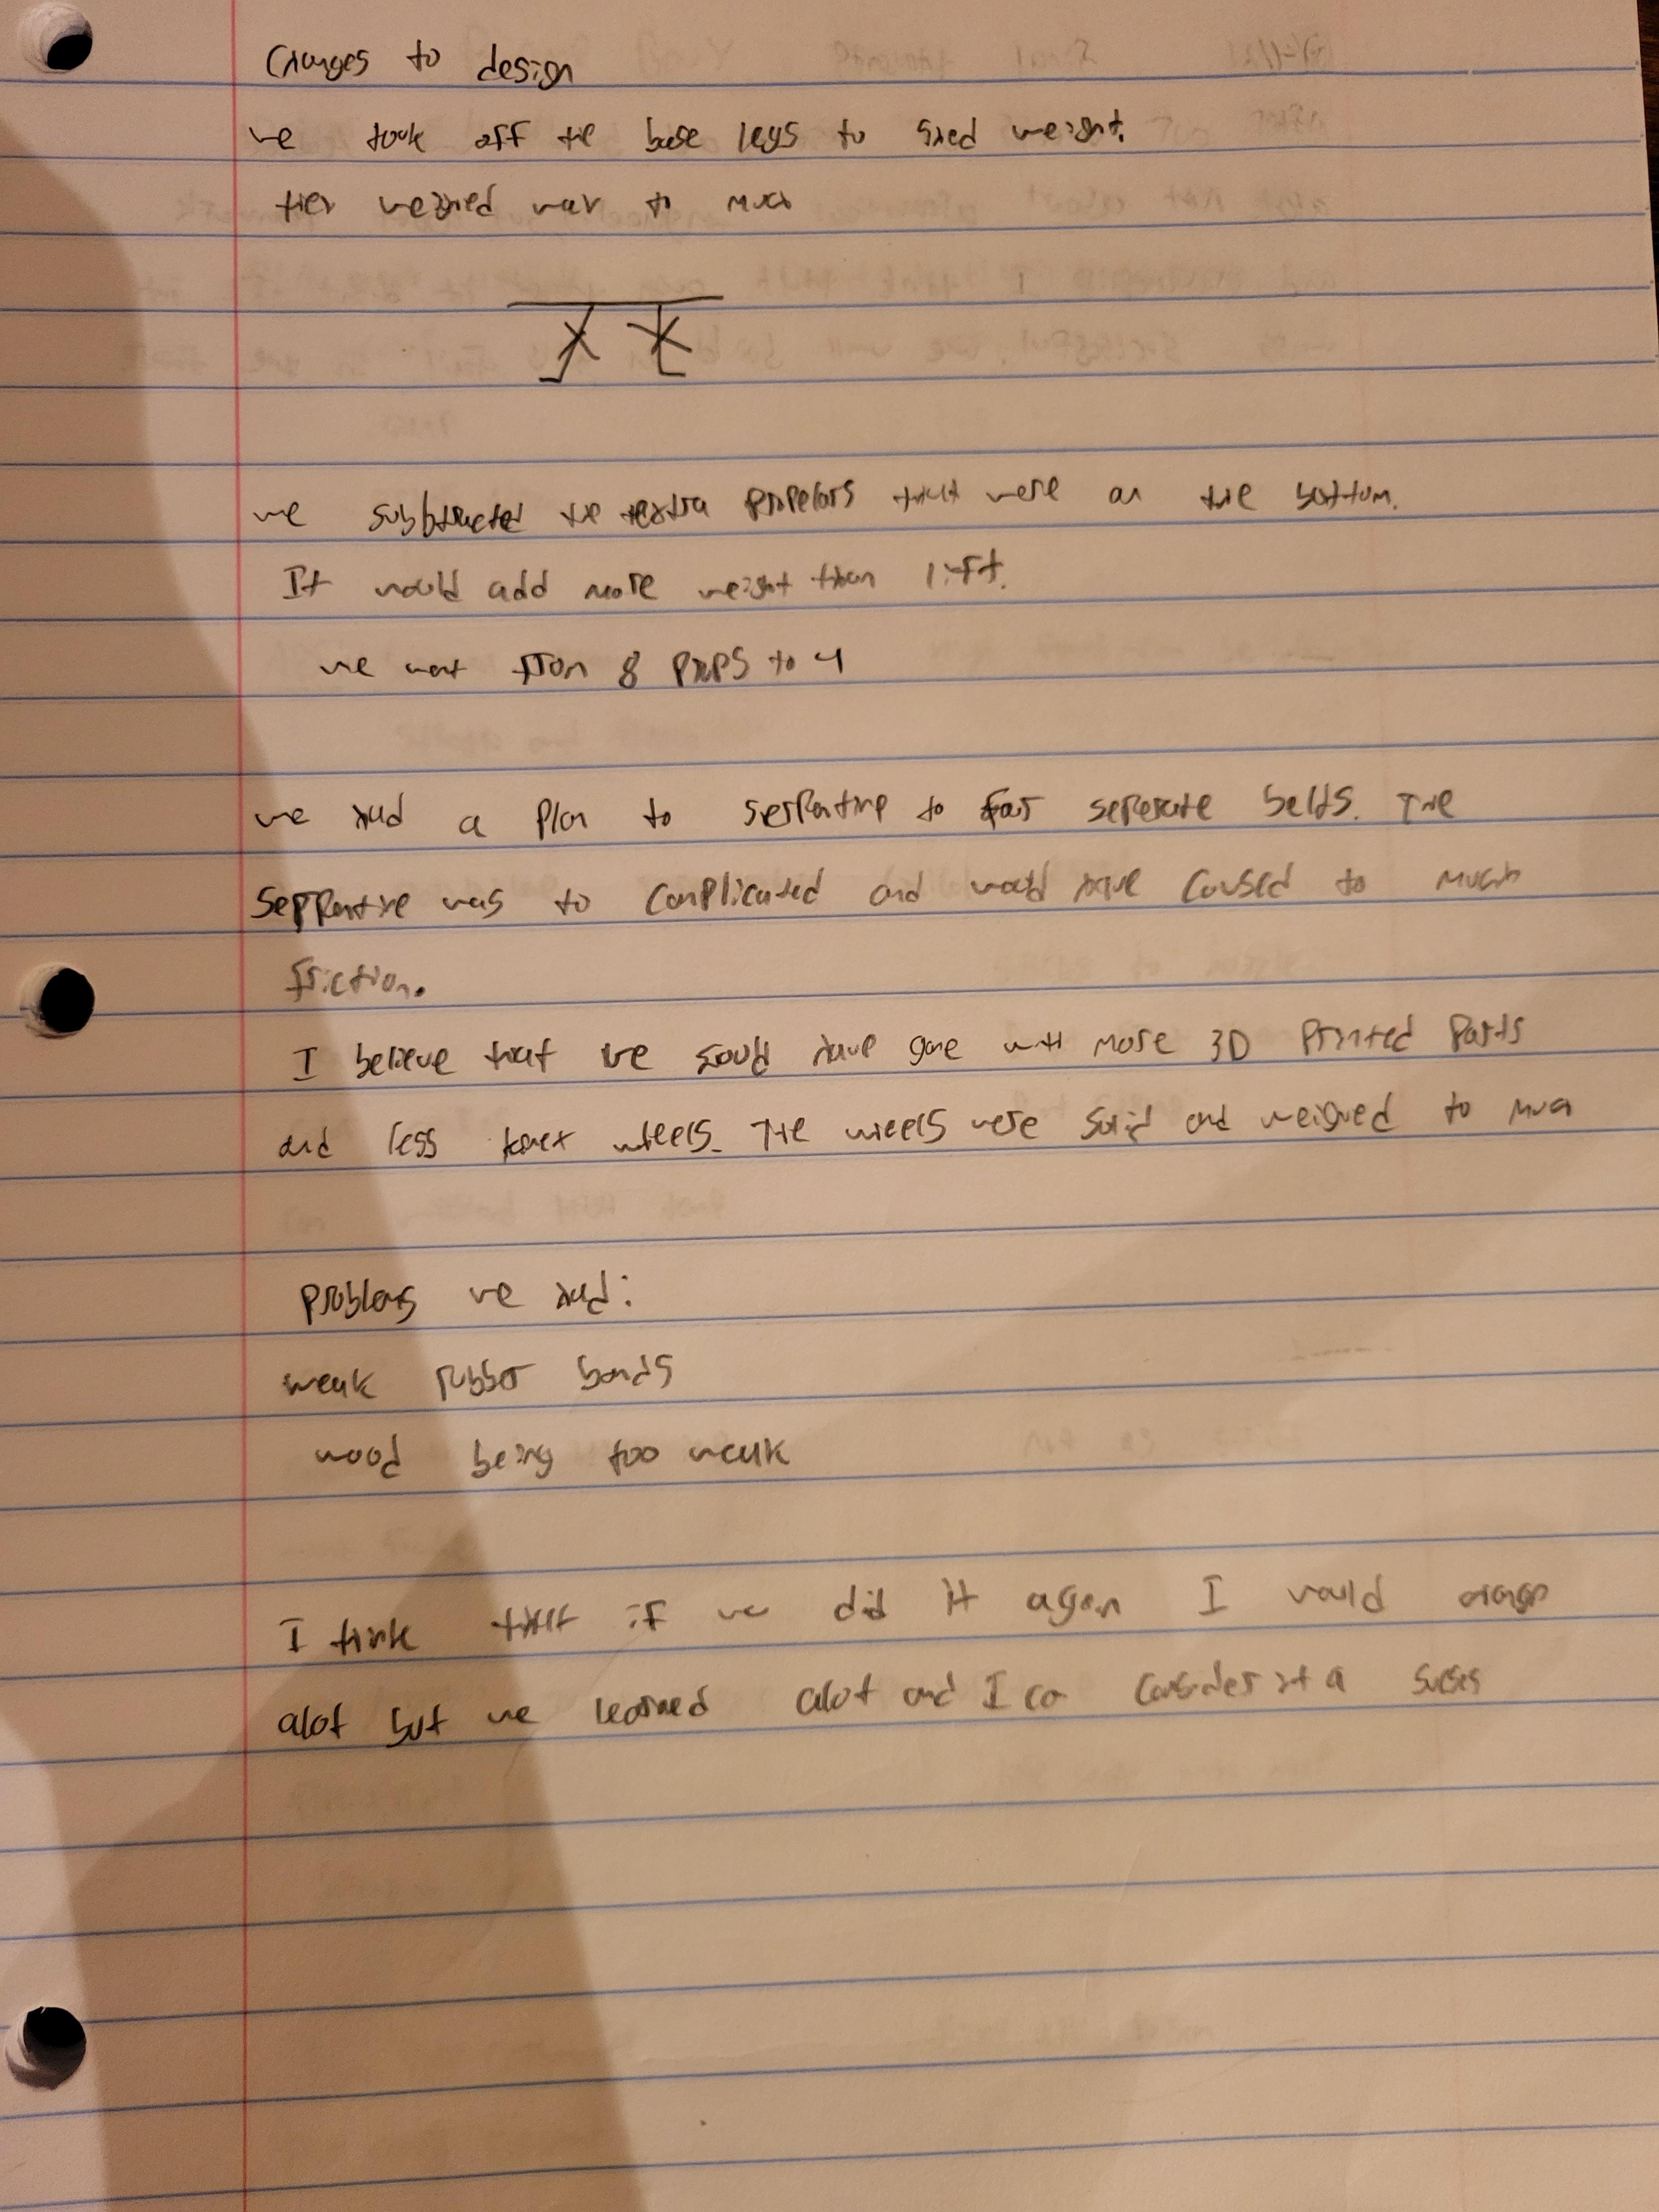 Changes to design
we took off the base legs to shed weight.
they weighed way to much
we subbtracted the extra propelors that were on the bottom.
It would add more weight than lift.
we went from 8 props to 4
we had a plan to serpentine to four seperate belts. The
serpentine was to complicated and would have caused to much
friction.
I believe that we should have gone with more 3D Printed Parts
and less knex wheels. The wheels were solid and weighed to much
problems we had:
weak rubber bands
wood being too weak
I think that if we did it again I would change
alot but we learned alot and I can consider it a